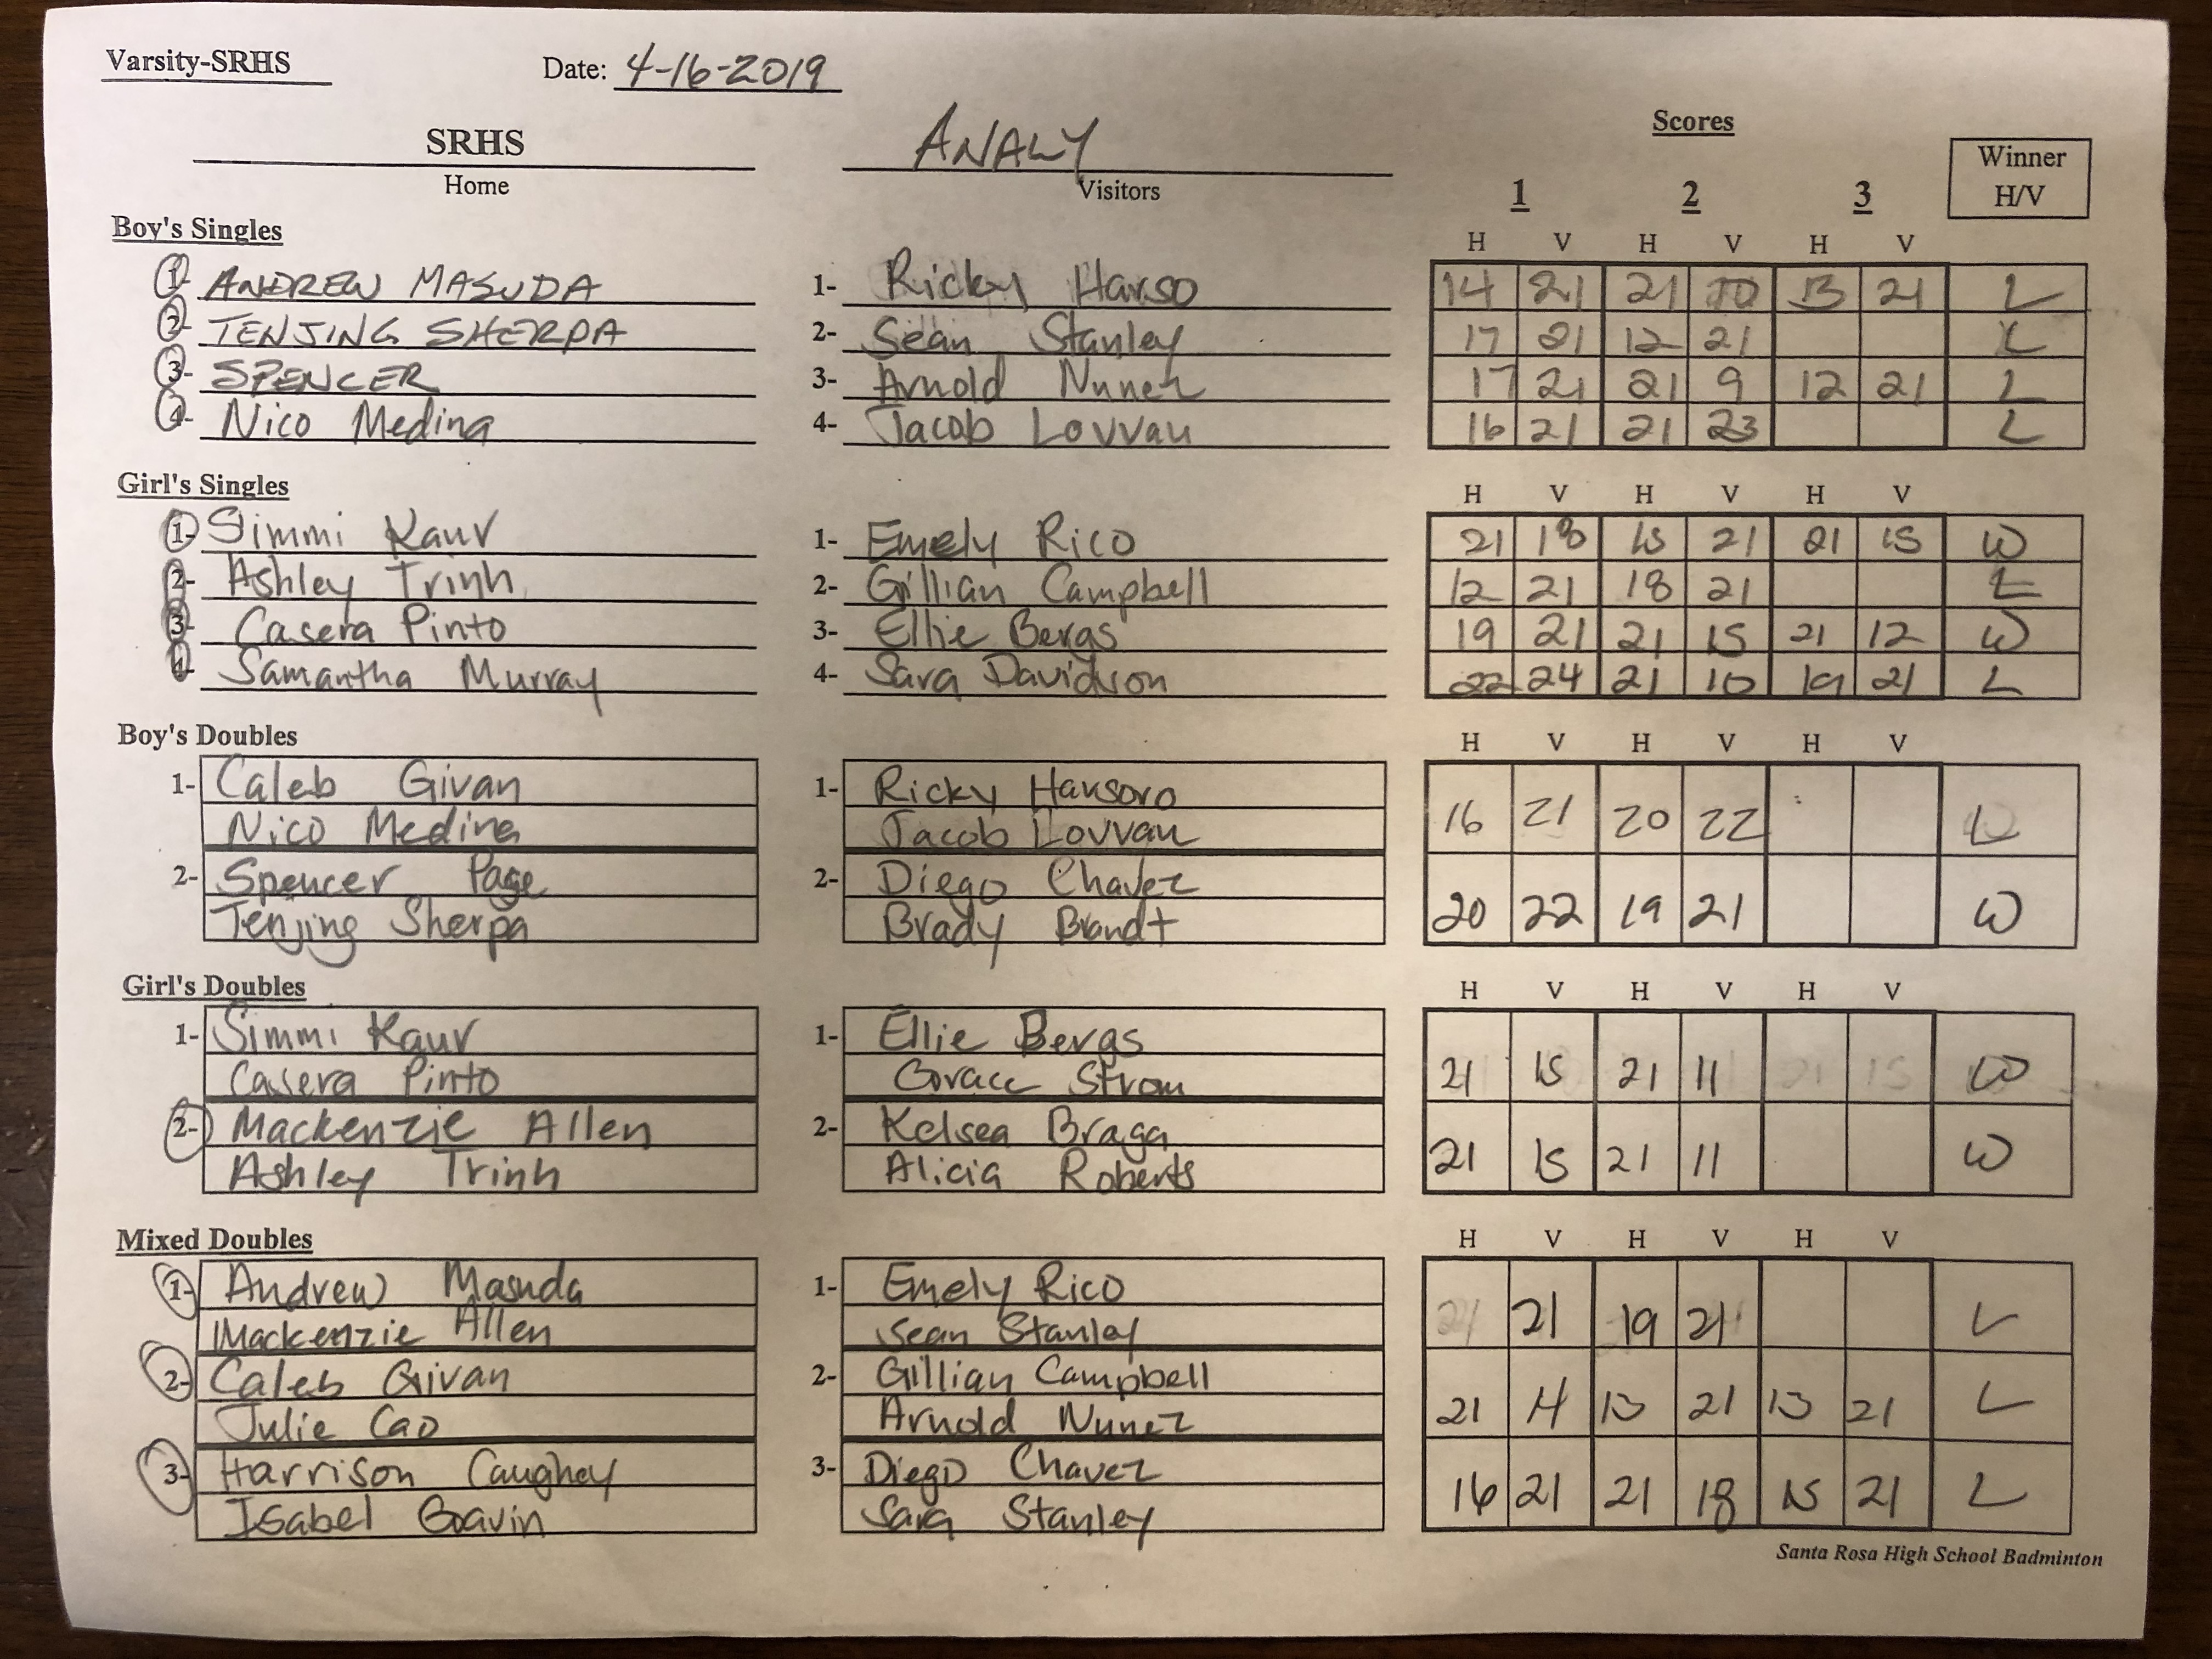 Varsity-SRHS Date: 4-16-2019
Scores
SRHS ANALY Winner
Home Visitors 1 2 3 H/V
Boy's Singles H V H V H V
1- ANDREW MASUDA 1- Ricky Harso 14 21 21 10 13 21 L
2- TENJING SHERPA 2- Sean Stanley 17 21 12 21 L
3- SPENCER 3- Arnold Nunez 17 21 21 9 12 21 L
4- Nico Medina 4- Jacob Lovvau 16 21 21 23 L
Girl's Singles H V H V H V
1- Simmi Kaur 1- Emely Rico 21 18 15 21 21 15 W
2- Ashley Trinh 2- Gillian Campbell 12 21 18 21 L
3- Casera Pinto 3- Ellie Bergs 19 21 21 15 21 12 W
4- Samantha Murray 4- Sara Davidson 22 24 21 10 19 21 L
Boy's Doubles H V H V H V
1- Caleb Givan 1- Ricky Harsoro 16 21 20 22 L
Nico Medina Jacob Lovvau
2- Spencer Page 2- Diego Chavez 20 22 19 21 W
Tenjing Sherpa Brady Brandt
Girl's Doubles H V H V H V
1- Simmi Kaur 1- Ellie Bergs 21 15 21 11 W
Casera Pinto Grace Strom
2- Mackenzie Allen 2- Kelsea Braga 21 15 21 11 W
Ashley Trinh Alicia Roberts
Mixed Doubles H V H V H V
1- Andrew Masuda 1- Emely Rico 21 19 21 L
Mackenzie Allen Sean Stanley
2- Caleb Givan 2- Gillian Campbell 21 14 13 21 13 21 L
Julie Cao Arnold Nunez
3- Harrison Caughey 3- Diego Chavez 16 21 21 18 15 21 L
Isabel Gavin Sara Stanley
Santa Rosa High School Badminton